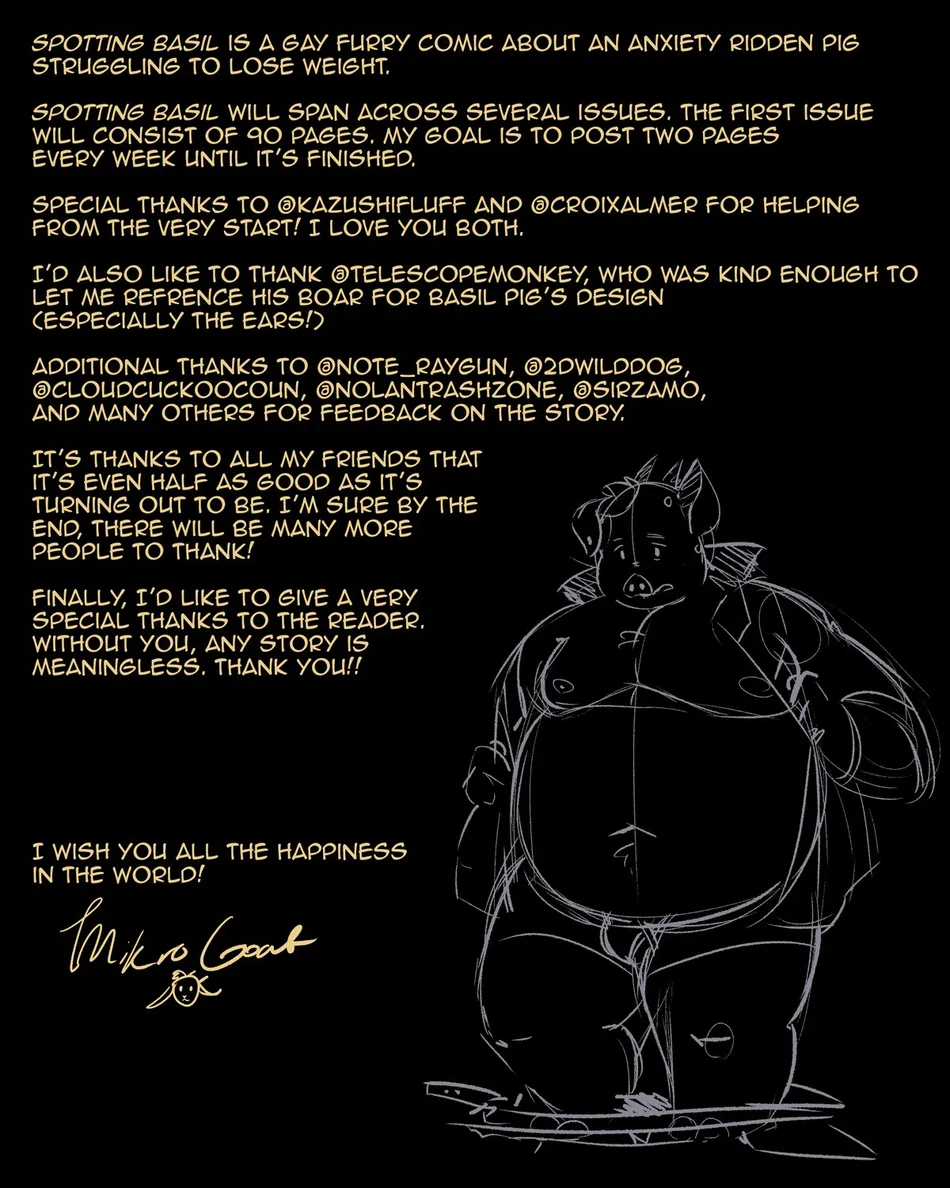 SPOTTING BASIL IS A GAY FURRY COMIC ABOUT AN ANXIETY RIDDEN PIG
STRUGGLING TO LOSE WEIGHT.
SPOTTING BASIL WILL SPAN ACROSS SEVERAL ISSUES. THE FIRST ISSUE
WILL CONSIST OF 90 PAGES. MY GOAL IS TO POST TWO PAGES
EVERY WEEK UNTIL IT'S FINISHED.
SPECIAL THANKS TO @KAZUSHIFLUFF AND @CROIXALMER FOR HELPING
FROM THE VERY START! I LOVE YOU BOTH.
I'D ALSO LIKE TO THANK @TELESCOPEMONKEY, WHO WAS KIND ENOUGH TO
LET ME REFRENCE HIS BOAR FOR BASIL PIG'S DESIGN
(ESPECIALLY THE EARS!)
ADDITIONAL THANKS TO @NOTE_RAYGUN, @2DWILDDOG,
@CLOUDCUCKOOCOUN, @NOLANTRASHZONE, @SIRZAMO,
AND MANY OTHERS FOR FEEDBACK ON THE STORY.
IT'S THANKS TO ALL MY FRIENDS THAT
IT'S EVEN HALF AS GOOD AS IT'S
TURNING OUT TO BE. I'M SURE BY THE
END, THERE WILL BE MANY MORE
PEOPLE TO THANK!
FINALLY, I'D LIKE TO GIVE A VERY
SPECIAL THANKS TO THE READER.
WITHOUT YOU, ANY STORY IS
MEANINGLESS. THANK YOU!!
I WISH YOU ALL THE HAPPINESS
IN THE WORLD!
Mikro Goat